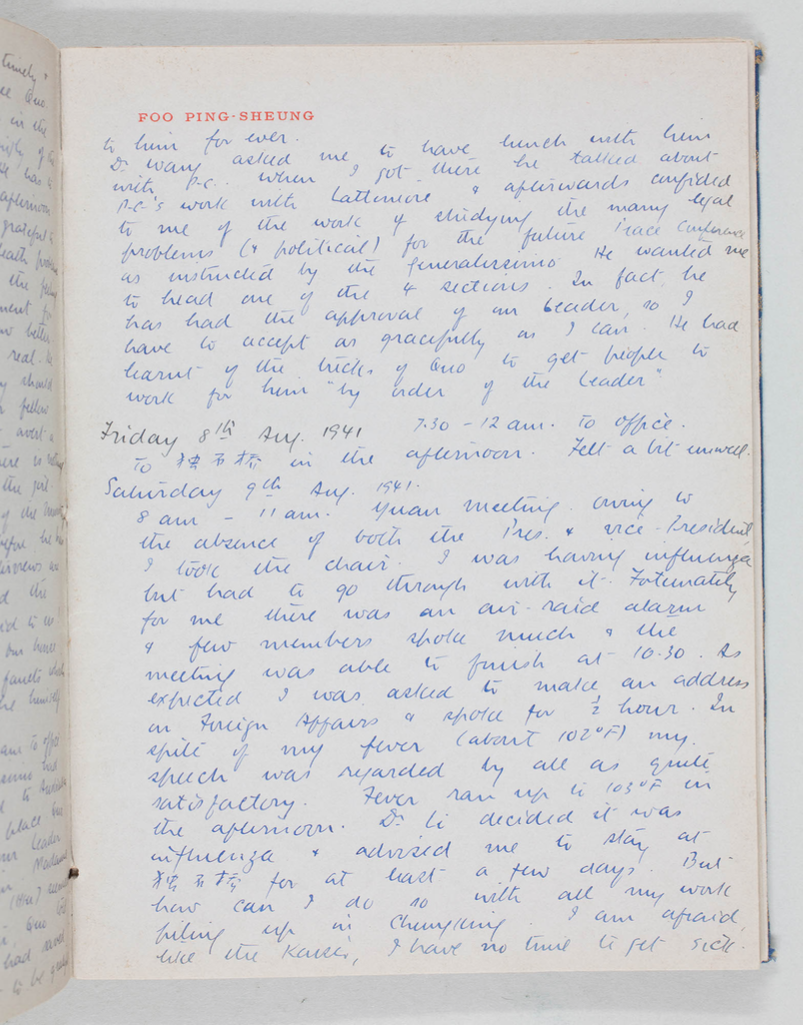 FOO PING-SHEUNG
to him for ever.
Dr. Wang asked me to have lunch with him
with P.C. When I got there he talked about
P.C.'s work with Lattimore & afterwards confided
to me of the work of studying the many legal
problems (& political) for the future Peace Conference
as instructed by the Generalissimo. He wanted me
to head one of the 4 sections. In fact, he
has had the approval of our Leader, so I
have to accept as gracefully as I can. He had
learnt of the tricks of Quo to get people to
work for him "by order of the Leader"
Friday 8th Aug. 1941 7.30 - 12 am. To office.
To in the afternoon. Felt a bit unwell.
Saturday 9th Aug. 1941.
8 am - 11 am. Yuan meeting. Owing to
the absence of both the Pres. & Vice-President,
I took the chair. I was having influenza
but had to go through with it. Fortunately
for me there was an air-raid alarm
& few members spoke much & the
meeting was able to finish at 10.30. As
expected I was asked to make an address
on Foreign Affairs & spoke for ½ hour. In
spite of my fever (about 102°F) my
speech was regarded by all as quite
satisfactory. Fever ran up to 103°F in
the afternoon. Dr. Li decided it was
influenza & advised me to stay at
for at least a few days. But
how can I do so with all my work
piling up in Chungking. I am afraid,
like the Kaiser, I have no time to get sick.